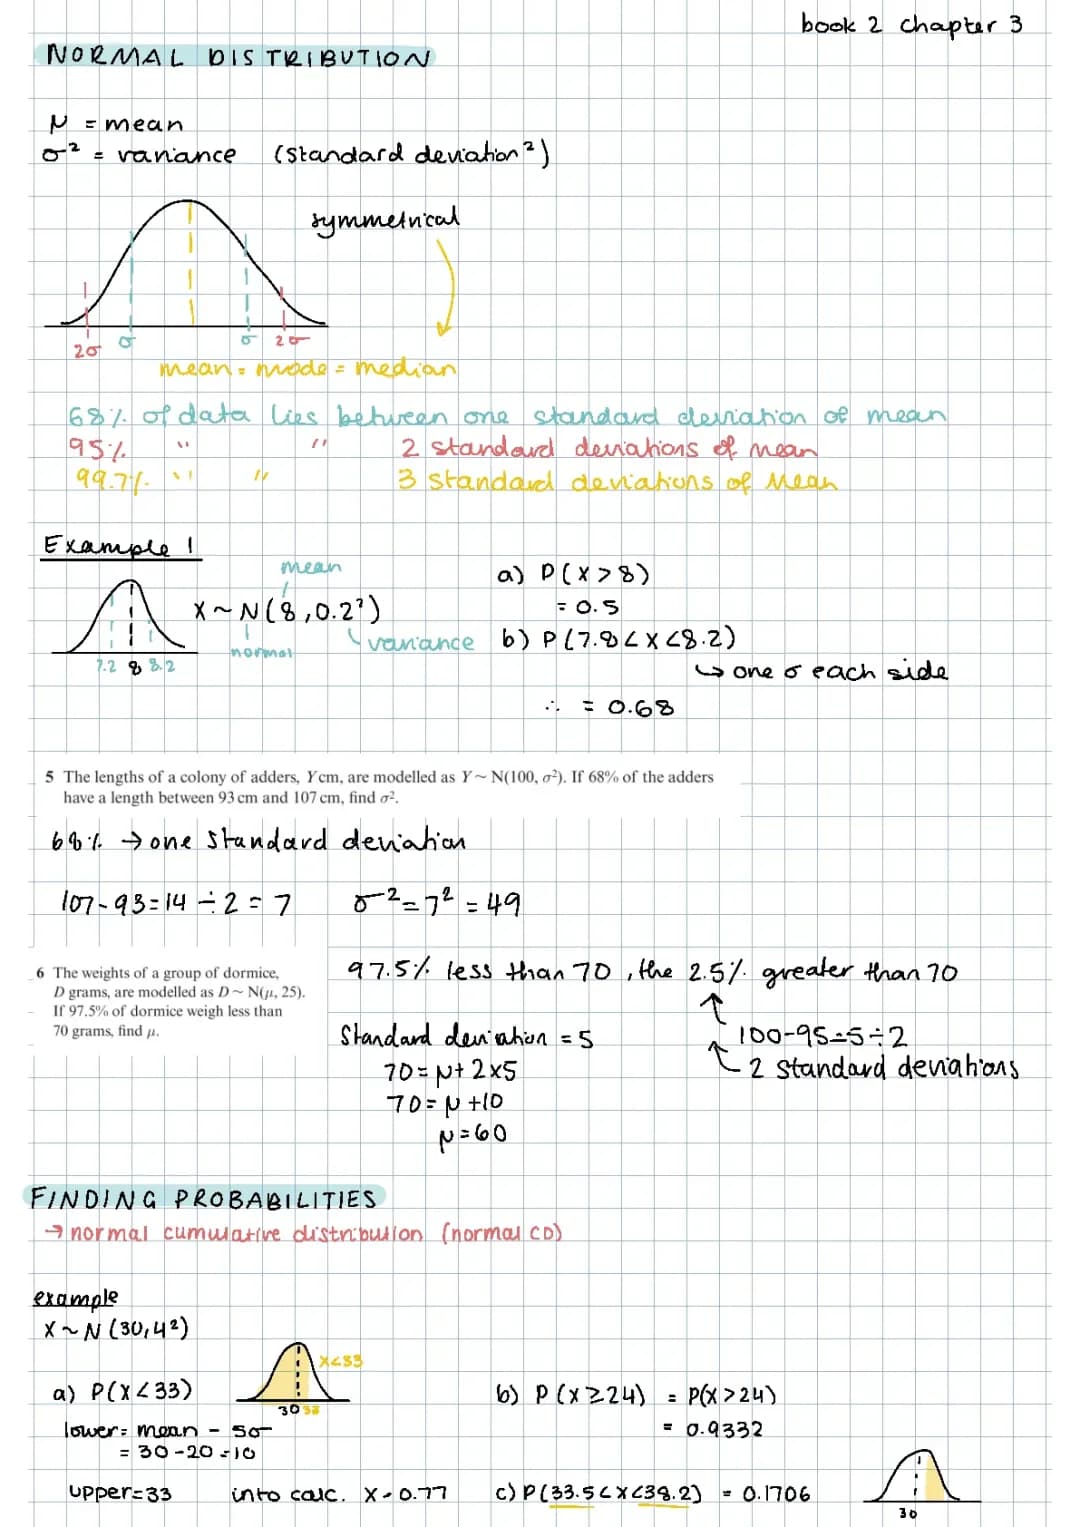 book 2 chapter 3
NORMAL DISTRIBUTION
μ = mean
σ² = variance (standard deviation²)
symmetrical
2σ σ σ 2σ
mean = mode = median
68% of data lies between one standard deviation of mean
95% " " 2 standard deviations of mean
99.7% " " 3 standard deviations of mean
Example 1
mean
X ~ N(8, 0.2²)
normal
variance
7.2 8 8.2
a) P(X > 8)
= 0.5
b) P(7.8 < X < 8.2)
↳ one σ each side
∴ = 0.68
5 The lengths of a colony of adders, Y cm, are modelled as Y ~ N(100, σ²). If 68% of the adders
have a length between 93 cm and 107 cm, find σ².
68% → one standard deviation
107-93=14 ÷ 2 = 7 σ²=7² = 49
6 The weights of a group of dormice,
D grams, are modelled as D ~ N(μ, 25).
If 97.5% of dormice weigh less than
70 grams, find μ.
97.5% less than 70, the 2.5% greater than 70
100-95=5÷2
2 standard deviations
Standard deviation = 5
70 = μ + 2×5
70 = μ + 10
μ = 60
FINDING PROBABILITIES
→ normal cumulative distribution (normal CD)
example
X ~ N (30, 4²)
a) P(X < 33)
X<33
30 33
lower = mean - 5σ
= 30 - 20 = 10
upper=33 into calc. X = 0.77
b) P(X ≥ 24) = P(X > 24)
= 0.9332
c) P(33.5 < X < 38.2) = 0.1706
30